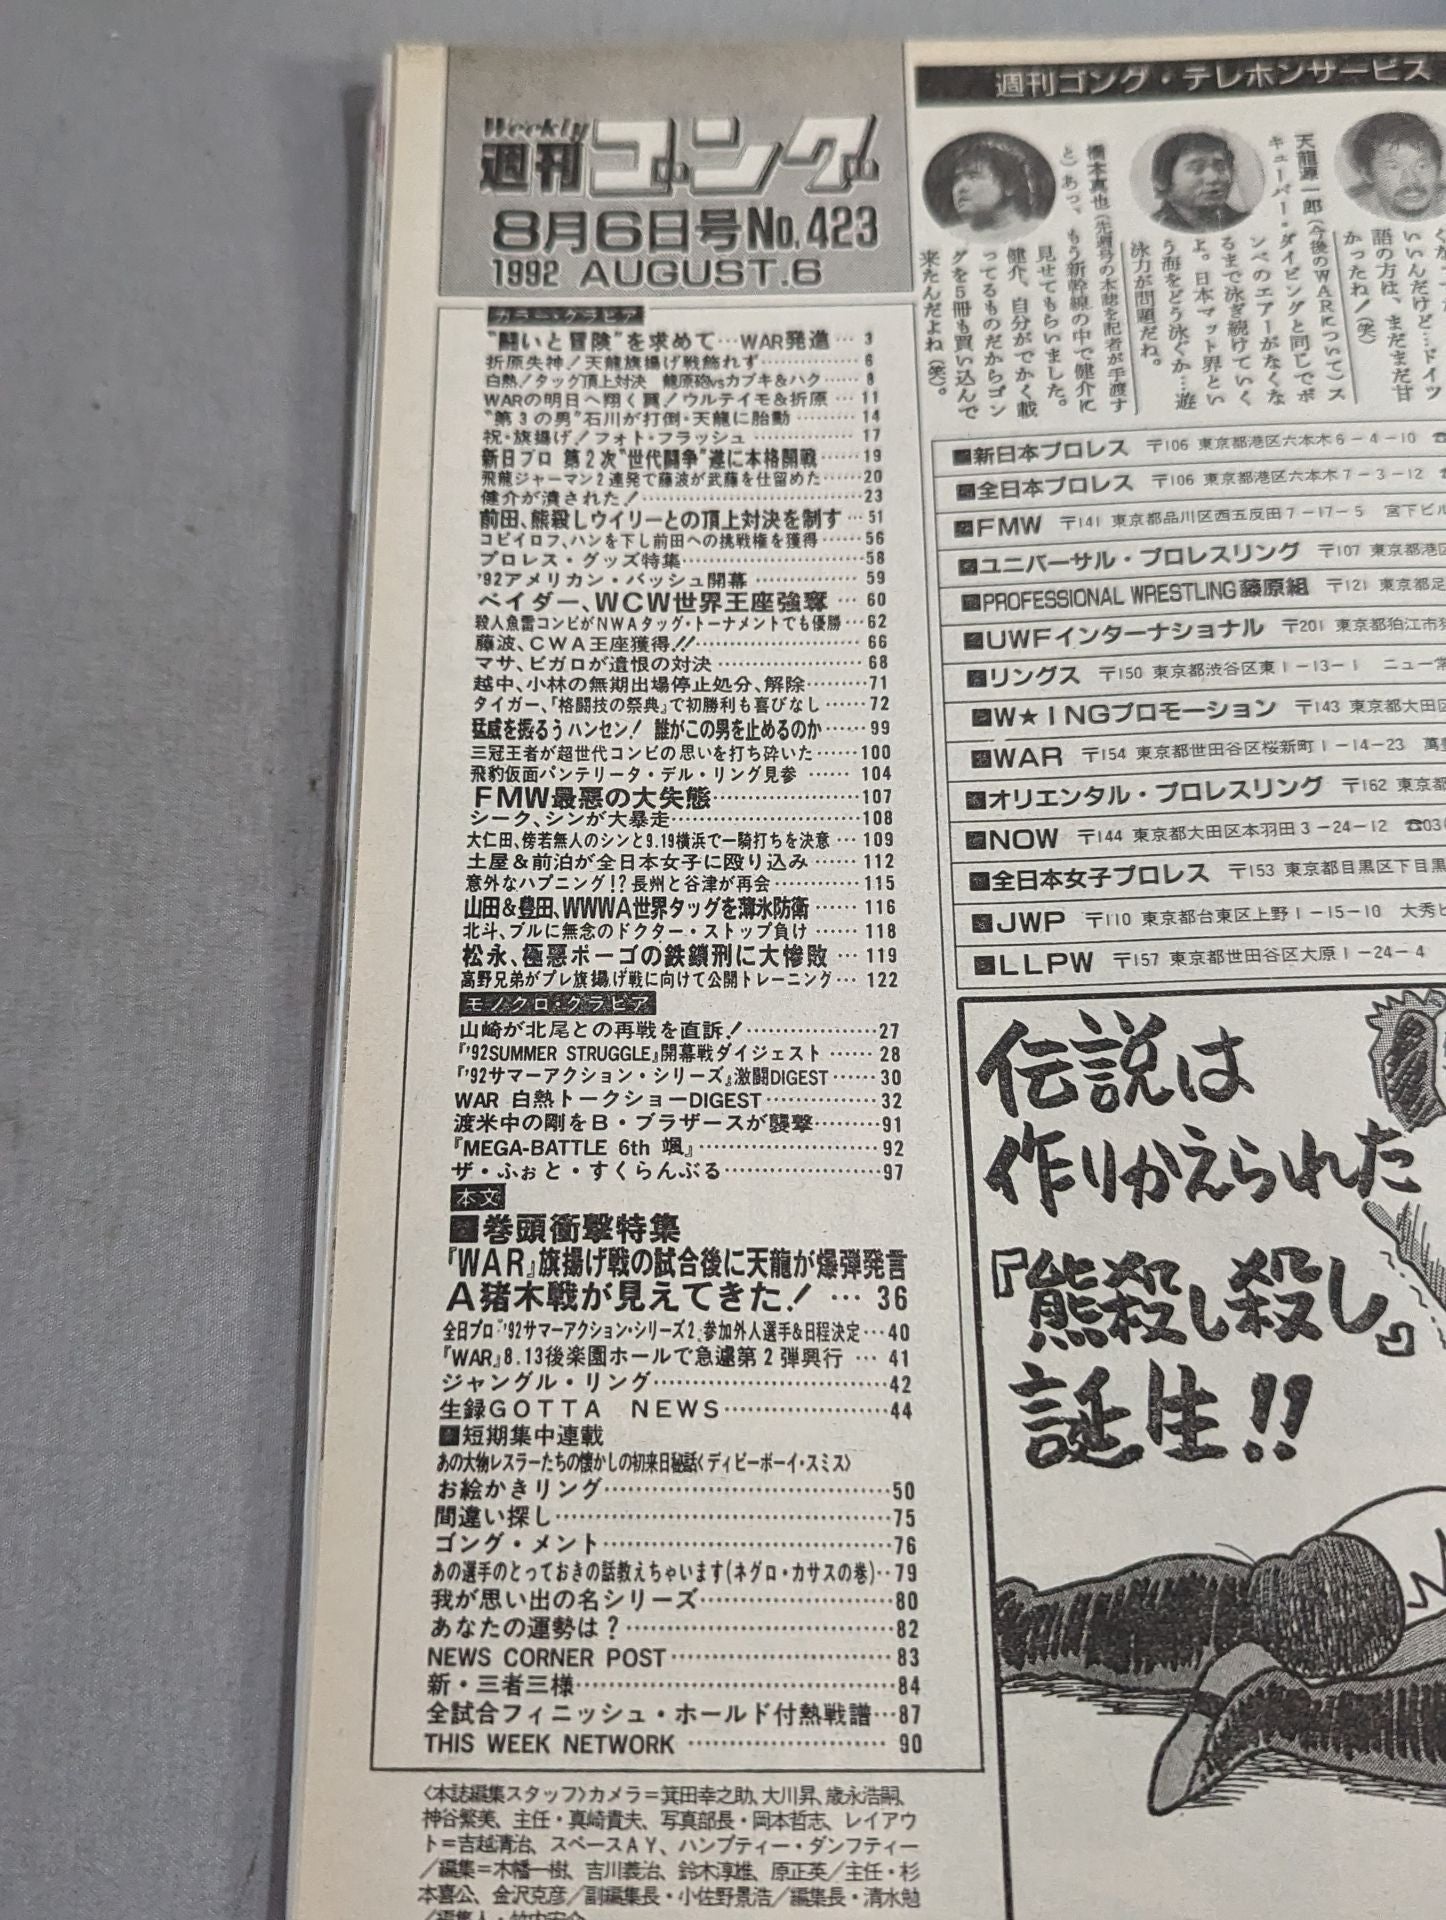 Weekly
週刊ゴング
8月6日号No.423
1992 AUGUST.6
カラー・グラビア
"闘いと冒険"を求めて…WAR発進… 3
折原失神!天龍旗揚げ戦飾れず…………… 6
白熱!タッグ頂上対決 龍原砲vsカブキ&ハク…… 8
WARの明日へ翔く翼!ウルティモ&折原…11
"第3の男"石川が打倒・天龍に胎動………14
祝・旗揚げ!フォト・フラッシュ……………17
新日プロ 第2次"世代闘争"遂に本格開戦……19
飛龍ジャーマン2連発で藤波が武藤を仕留めた……20
健介が潰された!……………………………23
前田、熊殺しウイリーとの頂上対決を制す…51
コピイロフ、ハンを下し前田への挑戦権を獲得……56
プロレス・グッズ特集………………………58
'92アメリカン・バッシュ開幕……………59
ベイダー、WCW世界王座強奪…60
殺人魚雷コンビがNWAタッグ・トーナメントでも優勝…62
藤波、CWA王座獲得!!……………………66
マサ、ビガロが遺恨の対決…………………68
越中、小林の無期出場停止処分、解除………71
タイガー、「格闘技の祭典」で初勝利も喜びなし……72
猛威を振るうハンセン! 誰がこの男を止めるのか……99
三冠王者が超世代コンビの思いを打ち砕いた……100
飛豹仮面パンテリータ・デル・リング見参……104
FMW最悪の大失態…………………107
シーク、シンが大暴走………………………108
大仁田、傍若無人のシンと9.19横浜で一騎打ちを決意…109
土屋&前泊が全日本女子に殴り込み……112
意外なハプニング!?長州と谷津が再会…………115
山田&豊田、WWWA世界タッグを薄氷防衛……116
北斗、ブルに無念のドクター・ストップ負け……118
松永、極悪ポーゴの鉄鎖刑に大惨敗…119
高野兄弟がプレ旗揚げ戦に向けて公開トレーニング…122
モノクロ・グラビア
山崎が北尾との再戦を直訴!………………27
『'92SUMMER STRUGGLE』開幕戦ダイジェスト……28
『'92サマーアクション・シリーズ』激闘DIGEST……30
WAR 白熱トークショーDIGEST……………32
渡米中の剛をB・ブラザースが襲撃………91
『MEGA-BATTLE 6th 颯』……………………92
ザ・ふぉと・すくらんぶる…………………97
本文
■巻頭衝撃特集
『WAR』旗揚げ戦の試合後に天龍が爆弾発言
A猪木戦が見えてきた!…36
全日プロ「'92サマーアクション・シリーズ2」参加外人選手&日程決定…40
『WAR』8.13後楽園ホールで急遽第2弾興行…41
ジャングル・リング…………………………42
生録GOTTA NEWS…………………44
■短期集中連載
あの大物レスラーたちの懐かしの初来日秘話〈デイビーボーイ・スミス〉
お絵かきリング………………………………50
間違い探し……………………………………75
ゴング・メント………………………………76
あの選手のとっておきの話教えちゃいます(ネグロ・カサスの巻)…79
我が思い出の名シリーズ……………………80
あなたの運勢は?……………………………82
NEWS CORNER POST………………………83
新・三者三様…………………………………84
全試合フィニッシュ・ホールド付熱戦譜…87
THIS WEEK NETWORK……………………90
〈本誌編集スタッフ〉カメラ=箕田幸之助、大川昇、歳永浩嗣、
神谷繁美、主任・真崎貴夫、写真部長・岡本哲志、レイアウ
ト=吉越清治、スペースAY、ハンプティー・ダンプティー
/編集=木幡一樹、吉川義治、鈴木淳雄、原正英/主任・杉
本喜公、金沢克彦/副編集長・小佐野景浩/編集長・清水勉
/編集人・竹内宏介
週刊ゴング・テレホンサービス
くな
いいんだけど…ドイツ
語の方は、まだまだ甘
かったね!(笑)
天龍源一郎(今後のWARについて)ス
キューバー・ダイビングと同じでボ
ンベのエアーがなくな
るまで泳ぎ続けていく
よ。日本マット界とい
う海をどう泳ぐか…遊
泳力が問題だね。
橋本真也(先週号の本誌を記者が手渡す
と)あっ、もう新幹線の中で健介に
見せてもらいました。
健介、自分がでかく載
ってるものだからゴン
グを5冊も買い込んで
来たんだよね(笑)。
■新日本プロレス 〒106 東京都港区六本木6-4-10 ☎
■全日本プロレス 〒106 東京都港区六本木7-3-12
■FMW 〒141 東京都品川区西五反田7-17-5 宮下ビル
■ユニバーサル・プロレスリング 〒107 東京都港区
■PROFESSIONAL WRESTLING藤原組 〒121 東京都足
■UWFインターナショナル 〒201 東京都狛江市
■リングス 〒150 東京都渋谷区東1-13-1 ニュー常
■W★INGプロモーション 〒143 東京都大田区
■WAR 〒154 東京都世田谷区桜新町1-14-23 萬
■オリエンタル・プロレスリング 〒162 東京都
■NOW 〒144 東京都大田区本羽田3-24-12 ☎03
■全日本女子プロレス 〒153 東京都目黒区下目黒
■JWP 〒110 東京都台東区上野1-15-10 大秀ビ
■LLPW 〒157 東京都世田谷区大原1-24-4
伝説は
作りかえられた
『熊殺し殺し』
誕生!!